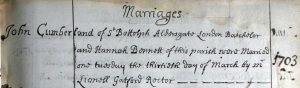 Marriages
John Cumberland of St Bottolph Aldersgate London Batchelor
and Hannah Bennett of this parish were Married
one tuesday the thirtieth day of March by me
Lionell Gatford Rector
1703